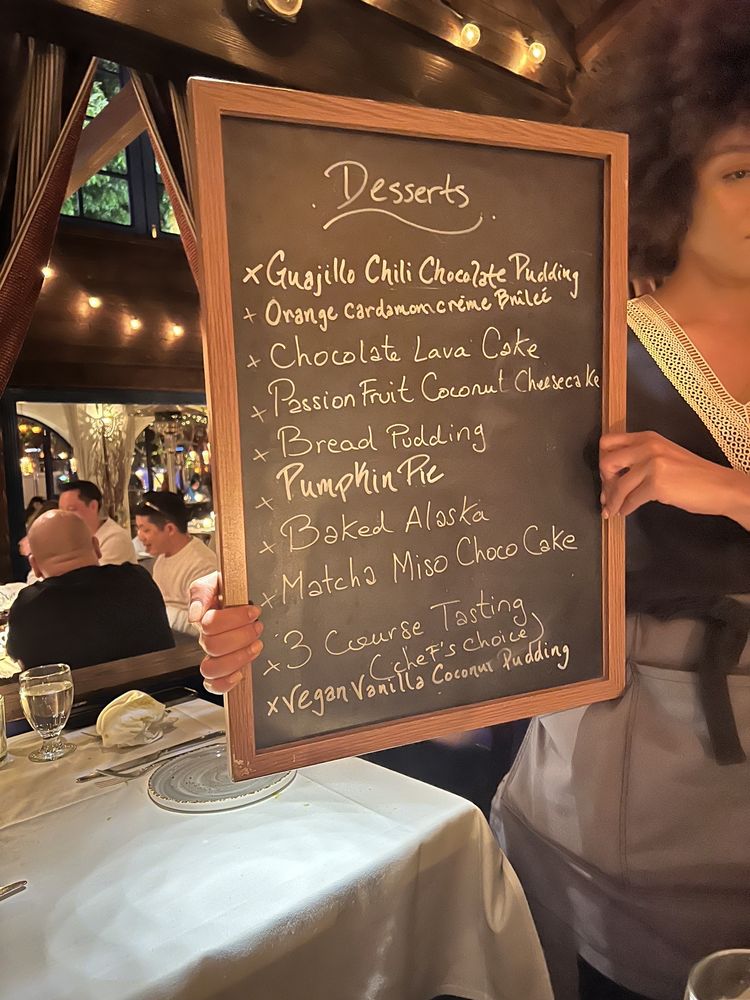 Desserts
x Guajillo Chili Chocolate Pudding
x Orange cardamom créme Brûleé
x Chocolate Lava Cake
x Passion Fruit Coconut Cheesecake
x Bread Pudding
x Pumpkin Pie
x Baked Alaska
x Matcha Miso Choco Cake
x 3 Course Tasting
(chef's choice)
x Vegan Vanilla Coconut Pudding